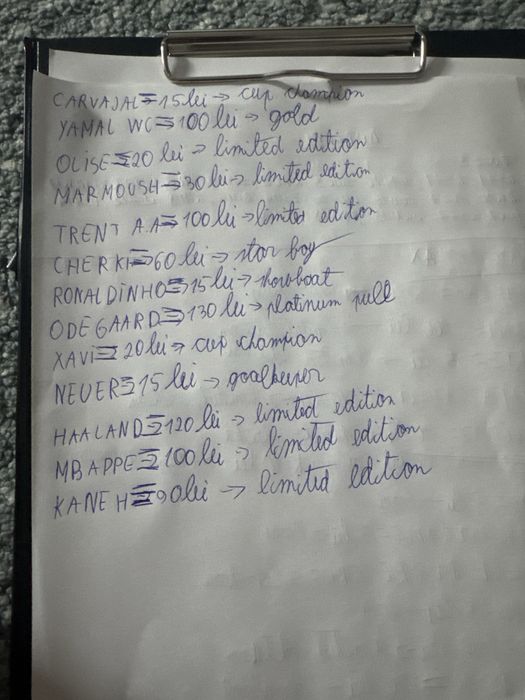 CARVAJAL=15lei→ cup champion
YAMAL WC=100lei→gold
OLISE=20 lei→ limited edition
MARMOUSH=30lei→ limited edition
TRENT A.A=100lei→limited edition
CHERKI=60lei→ star boy
RONALDINHO=15lei→showboat
ODEGAARD=130lei→platinum pull
XAVI=20lei→ cup champion
NEUER=15 lei→goalkeeper
HAALAND=120 lei→ limited edition
MBAPPE=100lei→ limited edition
KANE H=90lei→ limited edition